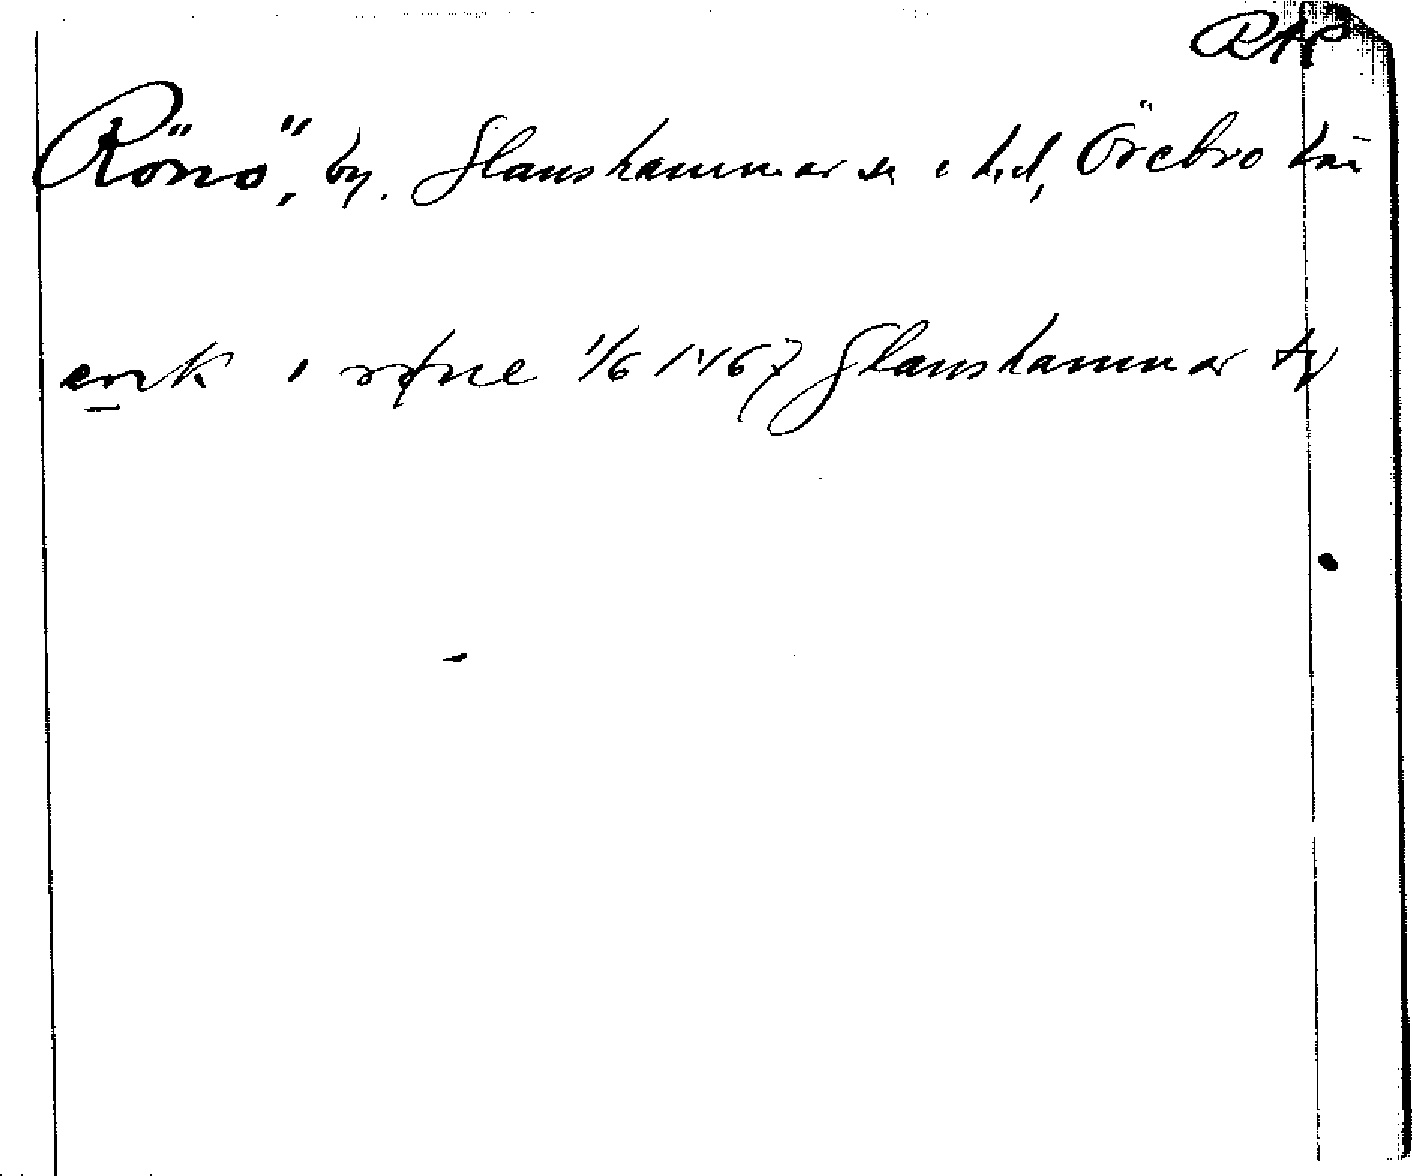 RAP
Rönö, by. Glanshammar sn o hd, Örebro län
erik i røne 1/6 1467 Glanshammar